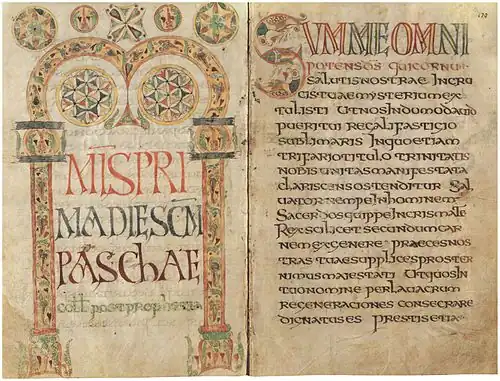 MIS PRI
MA DIE SCM
PASCHAE
coll post prophetia
SUMME OMNI
POTENS DS QUI CORNU
SALUTIS NOSTRAE IN CRU
CIS TUAE MYSTERIUM EX
TULISTI UT NOS IN DOMO DAUID
PUERI TUI REGALI FASTIGIO
SUBLIMARIS IN QUO ETIAM
TRIFARIO TITULO TRINITATIS
NOBIS UNITAS MANIFESTATA
CLARISCENS OSTENDITUR SAL
UATOR NEMPE IN HOMINEM
SACERDOS QUIPPE IN CRISMATE
REX SCILICET SECUNDUM CAR
NEM EX GENERE PRAECES NOS
TRAS TUAE SUPPLICES PROSTER
NIMUS MAIESTATI UT QUOS IN
TUO NOMINE PER LAUACRUM
REGENERACIONES CONSECRARE
DIGNATUS ES PRESTIS ETIA